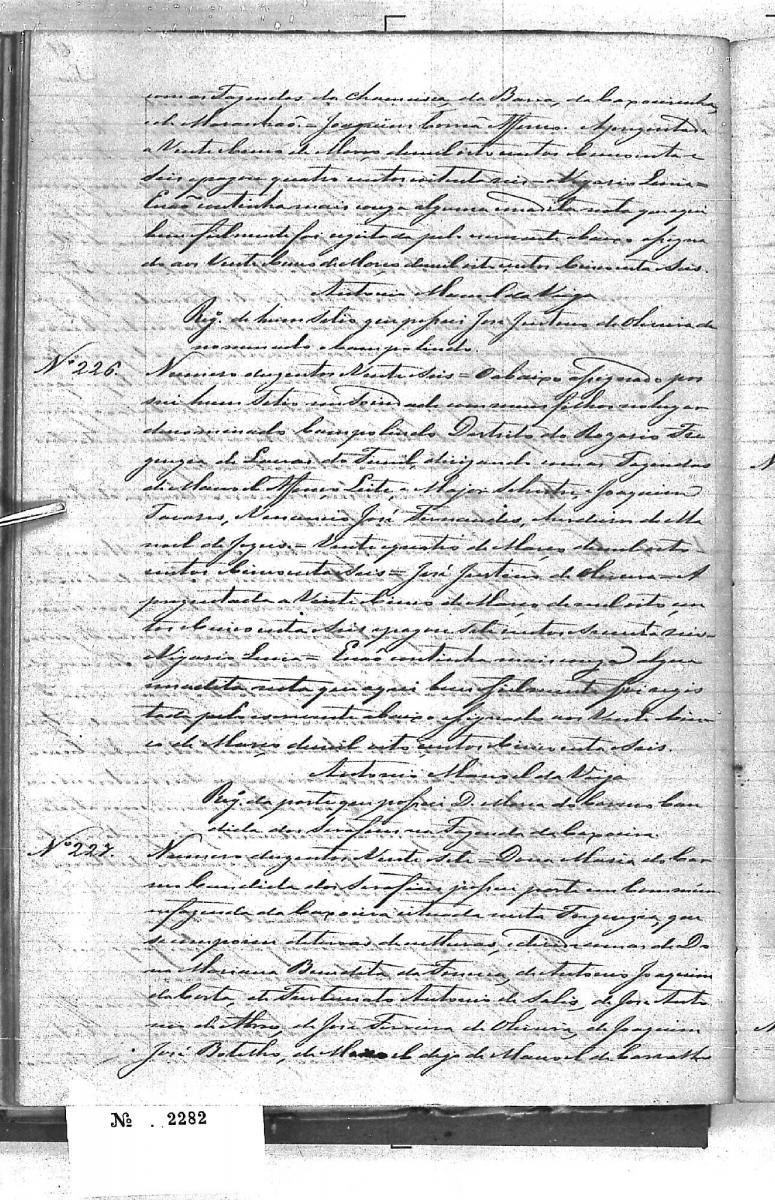 com as Fazendas da Chamusca, da Barra, da Capoeirinha,
e do Maranhaõ = Joaquim Affonço. Aprezentada
a Vinte e cinco de Março de mil oito centos e cincoenta e
Seis e pagou quatro centos reis = Vigario
E naõ continha mais couza alguma em a dita nota que aqui
bem e fielmente foi registada pelo escrevente abaixo assigna
do aos Vinte e cinco de Março de mil oito centos e cincoenta e Seis.
Antonio Manoel da Veiga
Reg. de hum Sitio que possui José Justino de Oliveira de
nominado Campo lindo.
Nº 226. Numero duzentos e Vinte e Seis = O abaixo assignado pos
sui hum Sitio em Sociedade com seus filhos no lugar
denominado Campo lindo Destricto do Rozario Fre
guezia de Lavras do Funil, divizando com as Fazendas
de Manoel Leite, Major Joaquim
Tavares, Venancio José Fernandes, de Ma
noel de Jezus = Vinte e quatro de Março de mil oito
centos e cincoenta e Seis = José Justino de Oliveira = A
prezentada a Vinte e cinco de Março de mil oito cen
tos e cincoenta e Seis e pagou sete centos e secenta reis =
Vigario = E naõ continha mais couza algua
em a dita nota que aqui bem e fielmente foi regis
tada pelo escrevente abaixo assignado aos Vinte e cin
co de Março de mil oito centos e cincoenta e Seis.
Antonio Manoel da Veiga
Reg. da parte que possui D. Maria do Carmo Can
dida dos Serafins na Fazenda da Capoeira
Nº 227. Numero duzentos e Vinte e Sete = Dona Maria do Car
mo Candida dos Serafins possui parte em Commum
na fazenda da Capoeira cituada nesta Freguezia, que
se compoem de terras de culturas, e divide com as de Do
na Mariana Benedita da Fonseca, de Antonio Joaquim
da Costa, de Fortunato Antonio de Salis, de José Anto
nio de Abreo, de José Ferreira de Oliveira, de Joaquim
José Botelho, de Manoel de Carvalho
Nº 2282